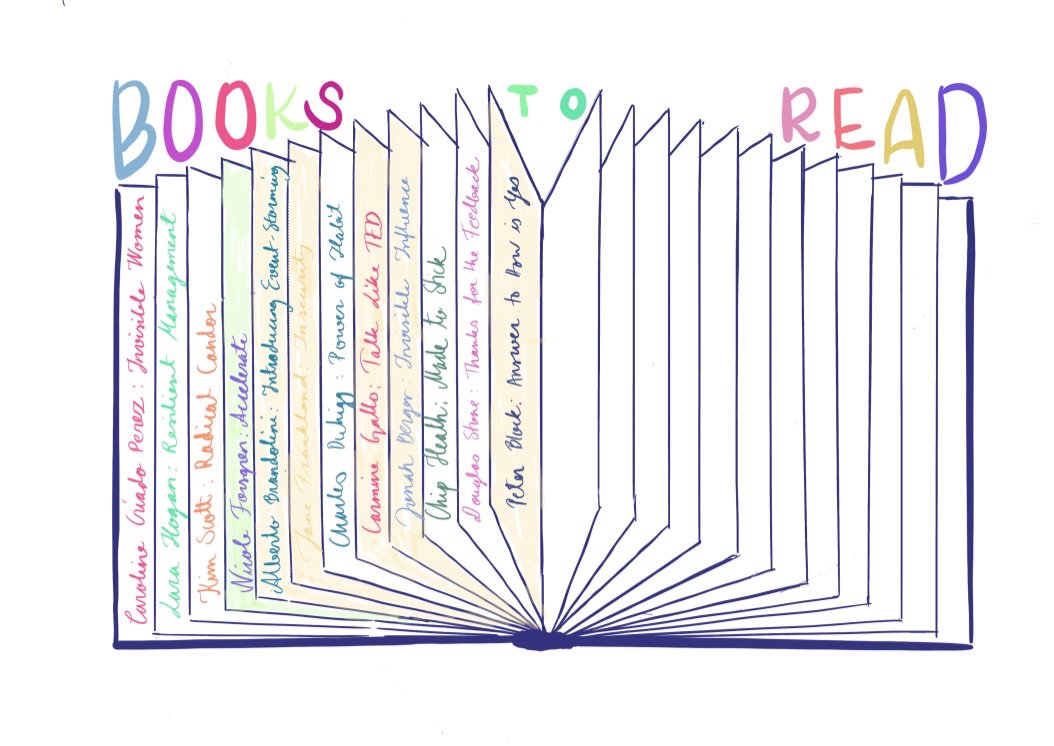 BOOKS TO READ
Caroline Criado Perez: Invisible Women
Lara Hogan: Resilient Management
Kim Scott: Radical Candor
Nicole Forsgren: Accelerate
Alberto Brandolini: Introducing Event-Storming
Jane Frankland: Insecurity
Charles Duhigg: Power of Habit
Carmine Gallo: Talk Like TED
Jonah Berger: Invisible Influence
Chip Heath: Made to Stick
Douglas Stone: Thanks for the Feedback
Peter Block: Answer to How is Yes